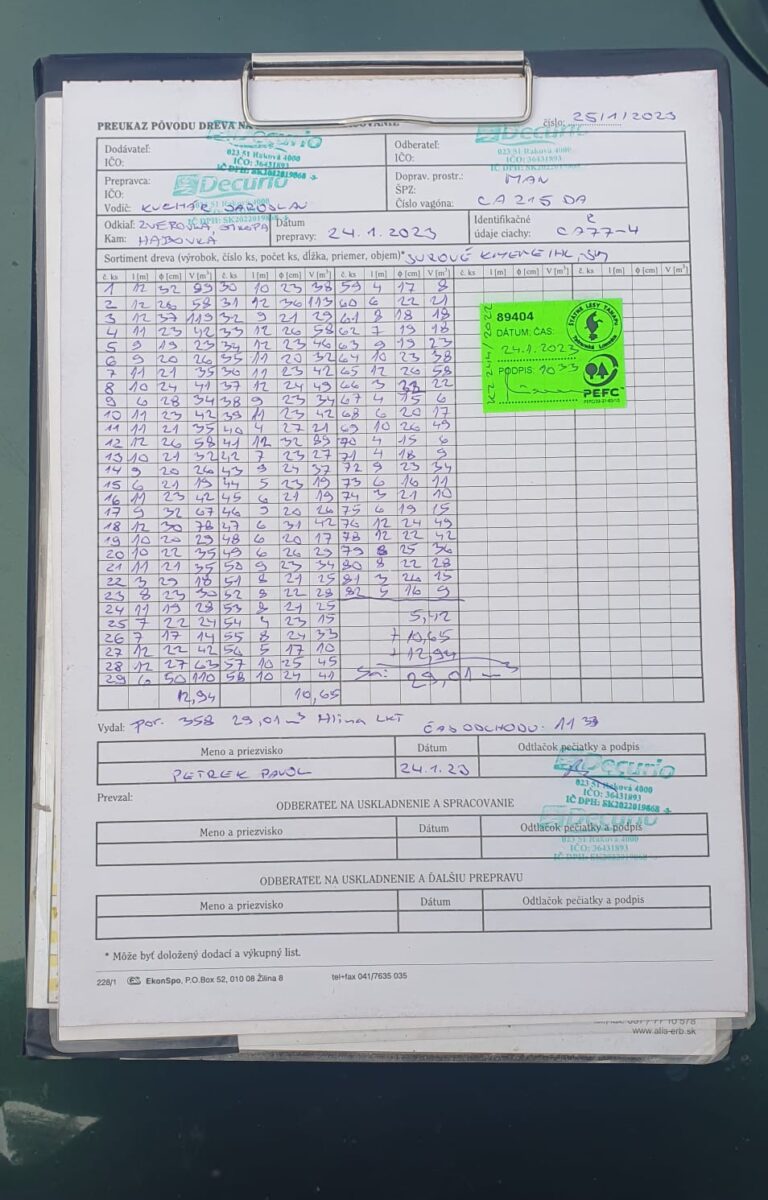 PREUKAZ PÔVODU DREVA NA
číslo: 25/1/2023
Dodávateľ:
IČO:
Decurio
023 51 Raková 4000
IČO: 36431893
IČ DPH: SK2022019868
Odberateľ:
IČO:
Decurio
023 51 Raková 4000
IČO: 36431893
Prepravca:
IČO:
Decurio
Vodič: KUCHAR JAROSLAV
IČ DPH: SK2022019868
Doprav. prostr.: MAN
ŠPZ:
Číslo vagóna: CA 215 DA
Odkiaľ: ZVEROVKA,
Kam: HABOVKA
Dátum
prepravy: 24.1.2023
Identifikačné
údaje ciachy: CA77-4
Sortiment dreva (výrobok, číslo ks, počet ks, dĺžka, priemer, objem)* SUROVÉ KMENE IHL. SM
č. ks l [m] ϕ [cm] V [m³] č. ks l [m] ϕ [cm] V [m³] č. ks l [m] ϕ [cm] V [m³] č. ks l [m] ϕ [cm] V [m³] č. ks l [m] ϕ [cm] V [m³]
1 12 32 89 30 10 23 38 59 4 17 8
2 12 26 58 31 12 36 113 60 6 22 21
3 12 37 119 32 9 21 29 61 8 18 18
4 11 23 42 33 12 26 58 62 7 19 18
5 9 19 23 34 12 23 46 63 9 19 23
6 9 20 26 35 11 20 32 64 10 23 38
7 11 21 35 36 11 23 42 65 12 26 58
8 10 24 41 37 12 24 49 66 3 33 22
9 6 28 34 38 9 23 34 67 4 15 6
10 11 23 42 39 11 23 42 68 6 20 17
11 11 21 35 40 4 27 21 69 10 26 49
12 12 26 58 41 12 32 89 70 4 15 6
13 10 21 32 42 7 23 27 71 4 18 9
14 9 20 26 43 9 24 37 72 9 23 34
15 6 21 19 44 5 23 19 73 6 16 11
16 11 23 42 45 6 21 19 74 3 21 10
17 9 32 67 46 9 20 26 75 6 19 15
18 12 30 78 47 6 31 42 76 12 24 49
19 10 20 29 48 6 20 17 78 12 22 42
20 10 22 35 49 6 26 29 79 8 25 36
21 11 21 35 50 9 23 34 80 8 22 28
22 3 29 18 51 8 21 25 81 3 26 15
23 8 23 30 52 8 22 28 82 5 16 9
24 11 19 28 53 8 21 25
25 7 22 24 54 4 23 15 5,42
26 7 17 14 55 8 24 33 + 10,65
27 12 22 42 56 5 17 10 + 12,94
28 12 27 63 57 10 25 45
29 6 50 110 58 10 24 41 Sa: 29,01 m³
12,94 10,65
89404
DÁTUM: ČAS:
24.1.2023
PODPIS: 10 33
ŠTÁTNE LESY TANAPU
PEFC
Vydal: por. 358 29,01 m³ Hlina LKT ČAS ODCHODU: 11 33
Meno a priezvisko Dátum Odtlačok pečiatky a podpis
PETREK PAVOL 24.1.23
Decurio
023 51 Raková 4000
IČO: 36431893
IČ DPH: SK2022019868
Prevzal:
ODBERATEĽ NA USKLADNENIE A SPRACOVANIE
Meno a priezvisko Dátum Odtlačok pečiatky a podpis
Decurio
023 51 Raková 4000
IČO: 36431893
IČ DPH: SK2022019868
ODBERATEĽ NA USKLADNENIE A ĎALŠIU PREPRAVU
Meno a priezvisko Dátum Odtlačok pečiatky a podpis
* Môže byť doložený dodací a výkupný list.
228/1 EkonSpo, P.O.Box 52, 010 08 Žilina 8 tel+fax 041/7635 035
www.alia-erb.sk